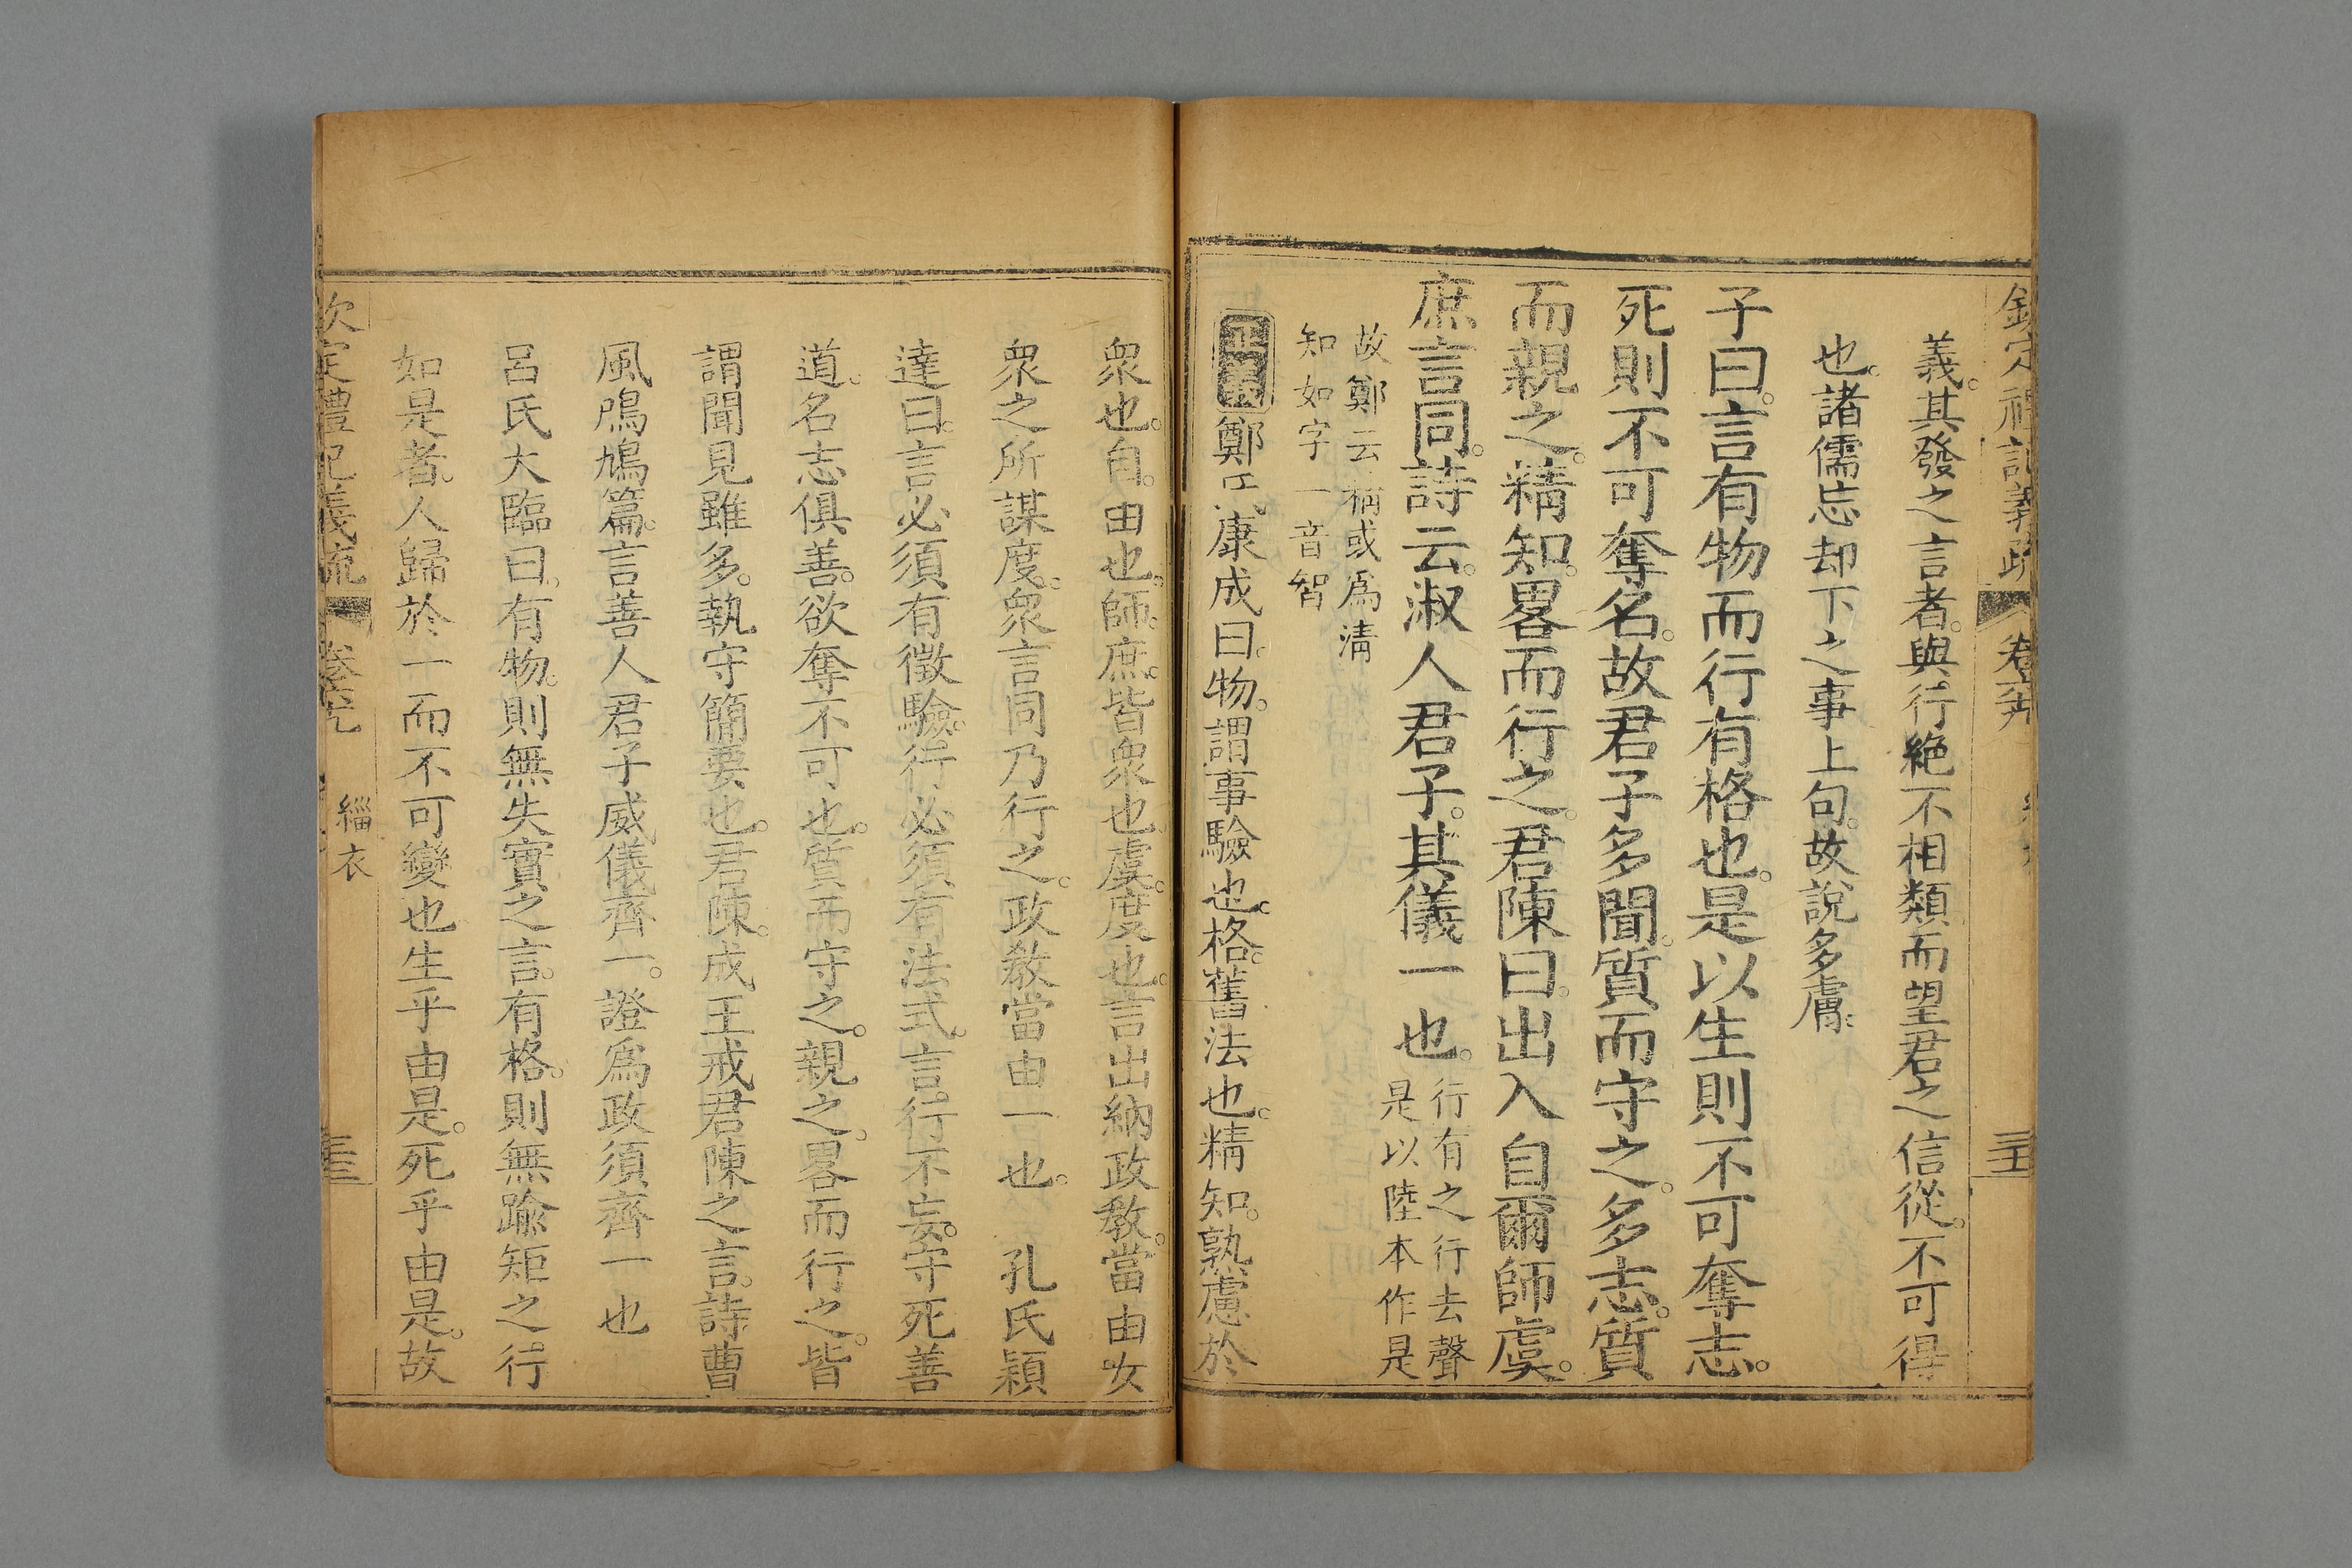 義。其發之言者。與行。絶不相類而望君之信從。不可得
也。諸儒忘却下之事上句。故說多膚。
子曰。言有物而行有格也。是以生則不可奪志。
死則不可奪名。故君子多聞。質而守之。多志。質
而親之。精知。畧而行之。君陳曰。出入自爾師虞。
庶言同。詩云。淑人君子。其儀一也。行有之行去聲
是以陸本作是
故鄭云稱或爲清
知如字一音智
鄭氏康成曰。物。謂事驗也。格。舊法也。精知。孰慮於
衆也。自。由也。師。庶。皆衆也。虞。度也。言出納政敎。當由女
衆之所謀度。衆言同乃行之。政敎當由一也。 孔氏穎
達曰。言必須有徵驗。行。必須有法式。言。行不妄。守死善
道。名志俱善。欲奪不可也。質而守之。親之。畧而行之。皆
謂聞見雖多。執守簡要也。君陳。成王戒君陳之言。詩曹
風鳲鳩篇。言善人君子威儀齊一。證爲政須齊一也
呂氏大臨曰。有物。則無失實之言。有格。則無踰矩之行
如是者。人歸於一而不可變也生乎由是。死乎由是。故
欽定禮記義疏 緇衣